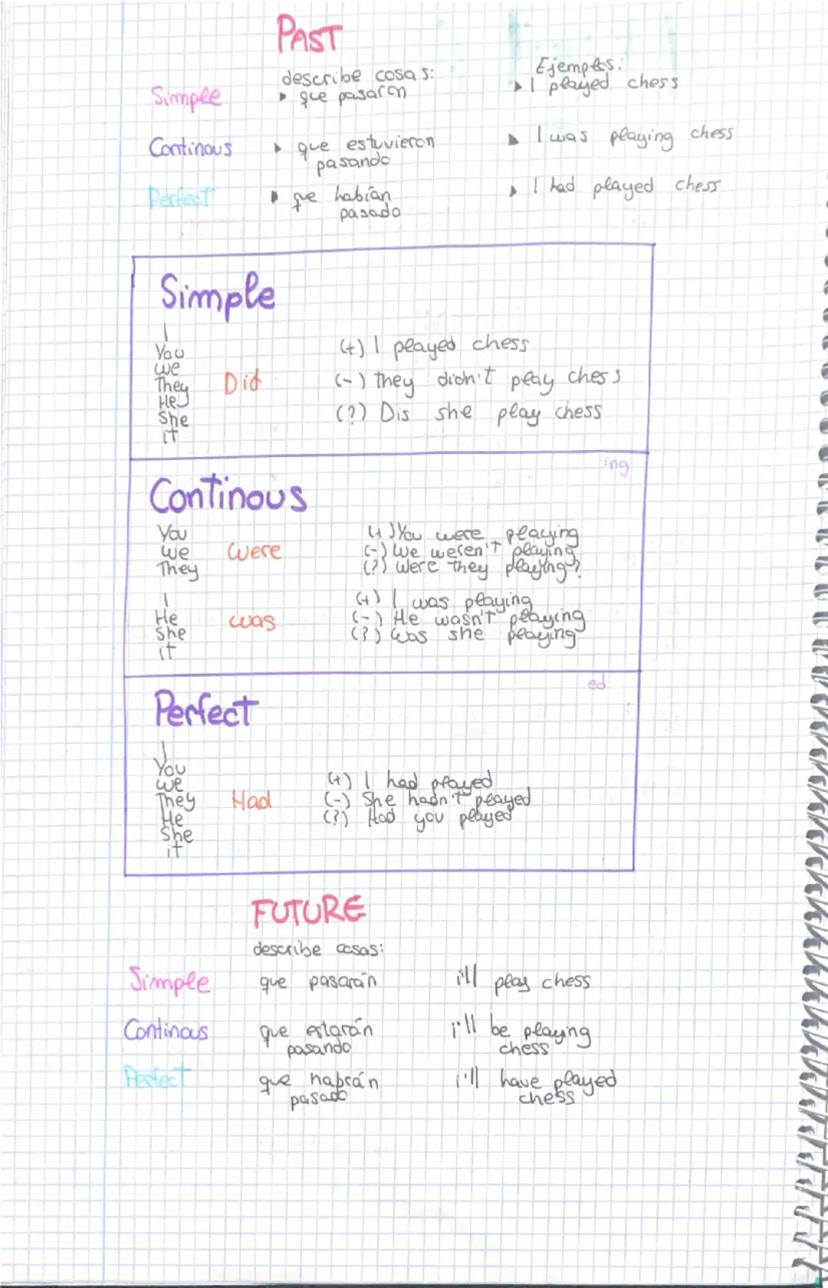 PAST
describe cosas:
Ejemplos:
Simple
▸ que pasaron
▸ I played chess
Continous
▸ que estuvieron
pasando
▸ I was playing chess
Perfect
▸ que habían
pasado
▸ I had played chess
Simple
I
You
we
They
He
She
it
Did
(+) I played chess
(-) They didn't play chess
(?) Dis she play chess
ing
Continous
You
we
They
were
(+) You were playing
(-) We weren't playing
(?) were they playing?
I
He
She
it
was
(+) I was playing
(-) He wasn't playing
(?) was she playing
ed
Perfect
I
You
we
They
He
She
it
Had
(+) I had played
(-) She hadn't played
(?) Had you played
FUTURE
describe cosas:
Simple
que pasarán
i'll play chess
Continous
que estarán
pasando
i'll be playing
chess
Perfect
que habrán
pasado
i'll have played
chess